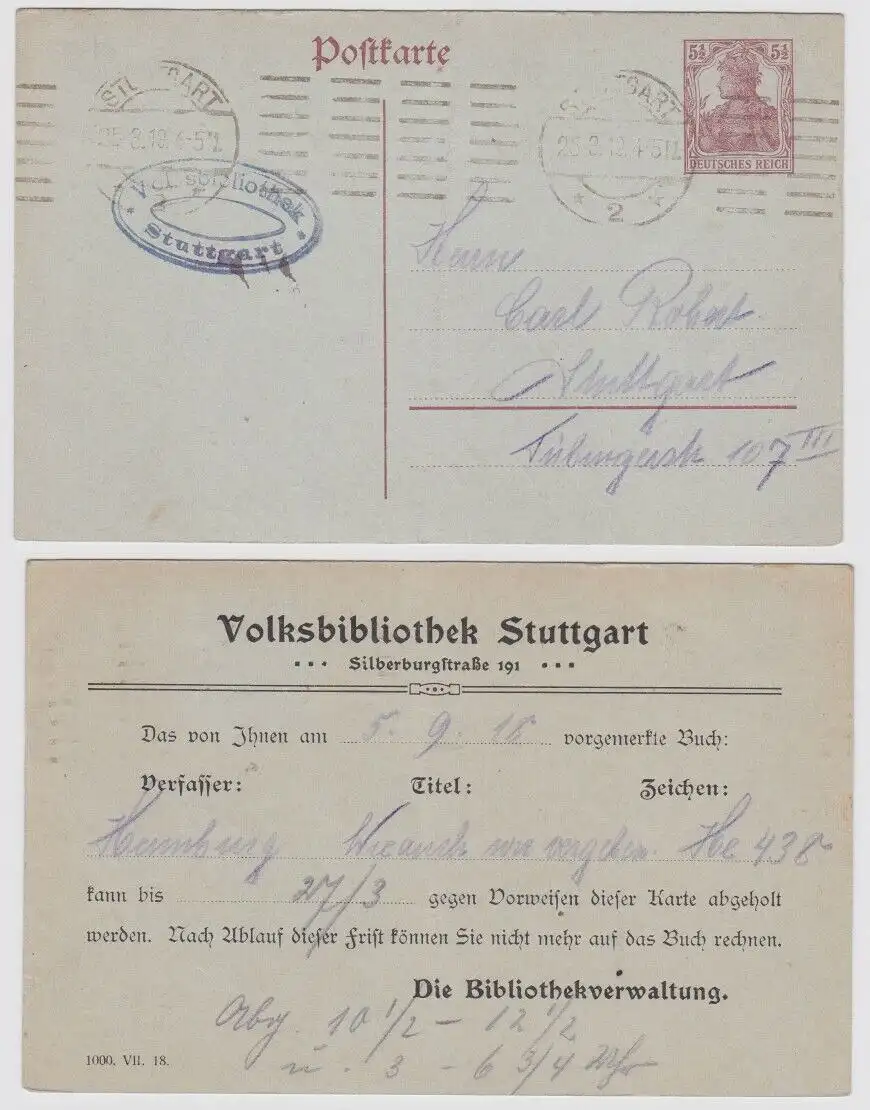 Poſtkarte
5½ 5½
DEUTSCHES REICH
STUTTGART
25.3.19. 4-5N.
STUTTGART
25.3.19. 4-5N.
* 2 *
Volksbibliothek
* *
Stuttgart
Herrn
Carl Robert
Stuttgart
Tübingerstr 107 III
Volksbibliothek Stuttgart
Silberburgſtraße 191
Das von Ihnen am 5. 9. 18 vorgemerkte Buch:
Verfaſſer: Titel: Zeichen:
Hamburg Wie auch wir vergeben. He 438
kann bis 27/3 gegen Vorweiſen dieſer Karte abgeholt
werden. Nach Ablauf dieſer Friſt können Sie nicht mehr auf das Buch rechnen.
Die Bibliothekverwaltung.
10 1/2 - 12 1/2
u. 3 - 6 3/4 Uhr
1000. VII. 18.